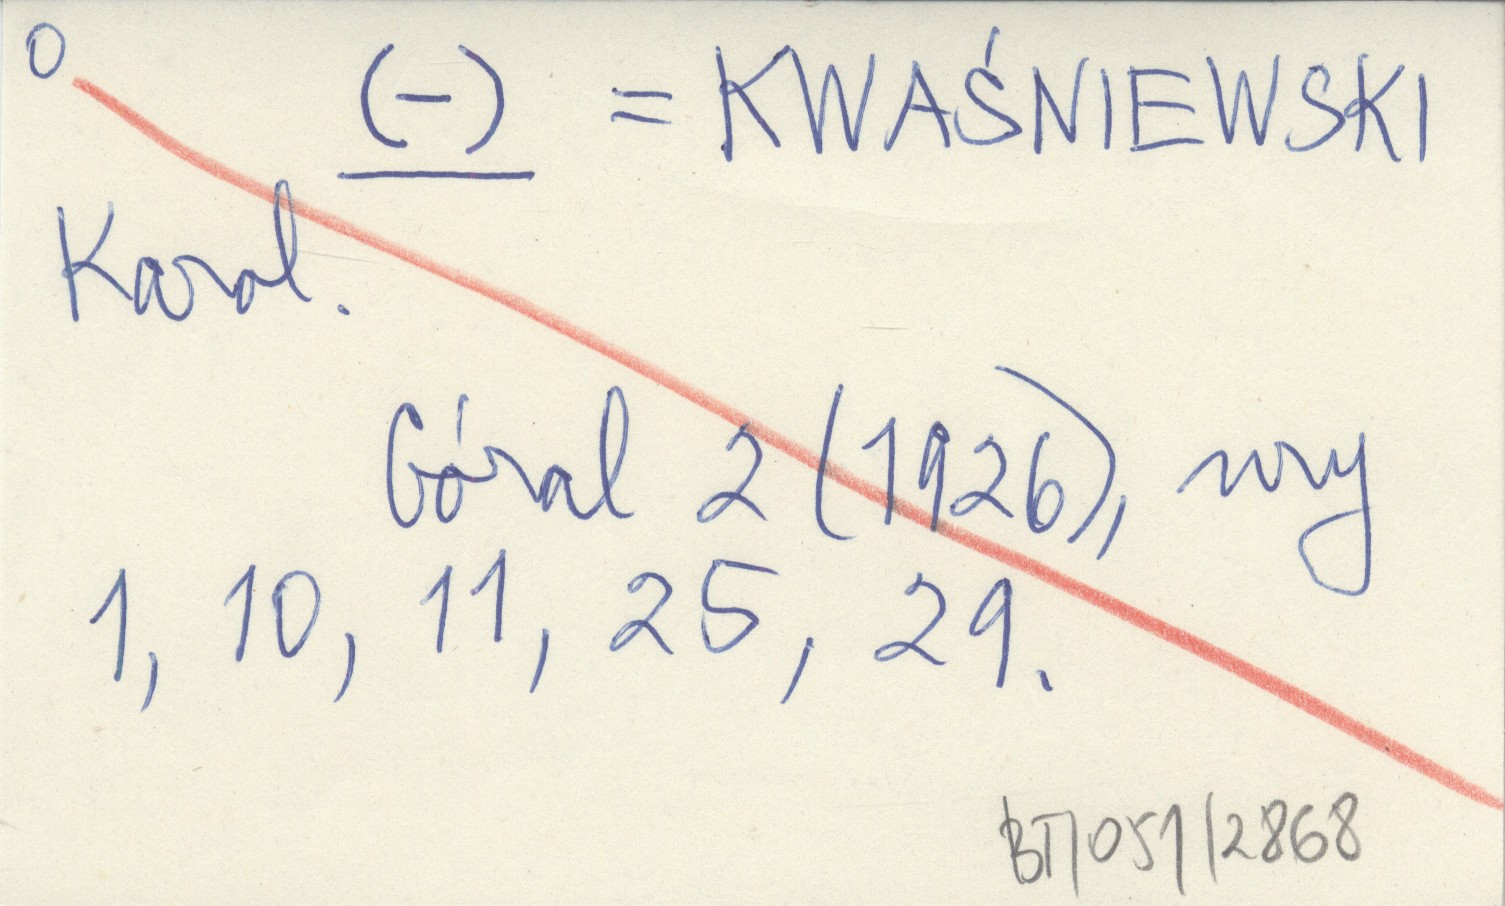 0 (-) = KWAŚNIEWSKI
Karol.
Góral 2 (1926), nry
1, 10, 11, 25, 29.
BT/051/2868